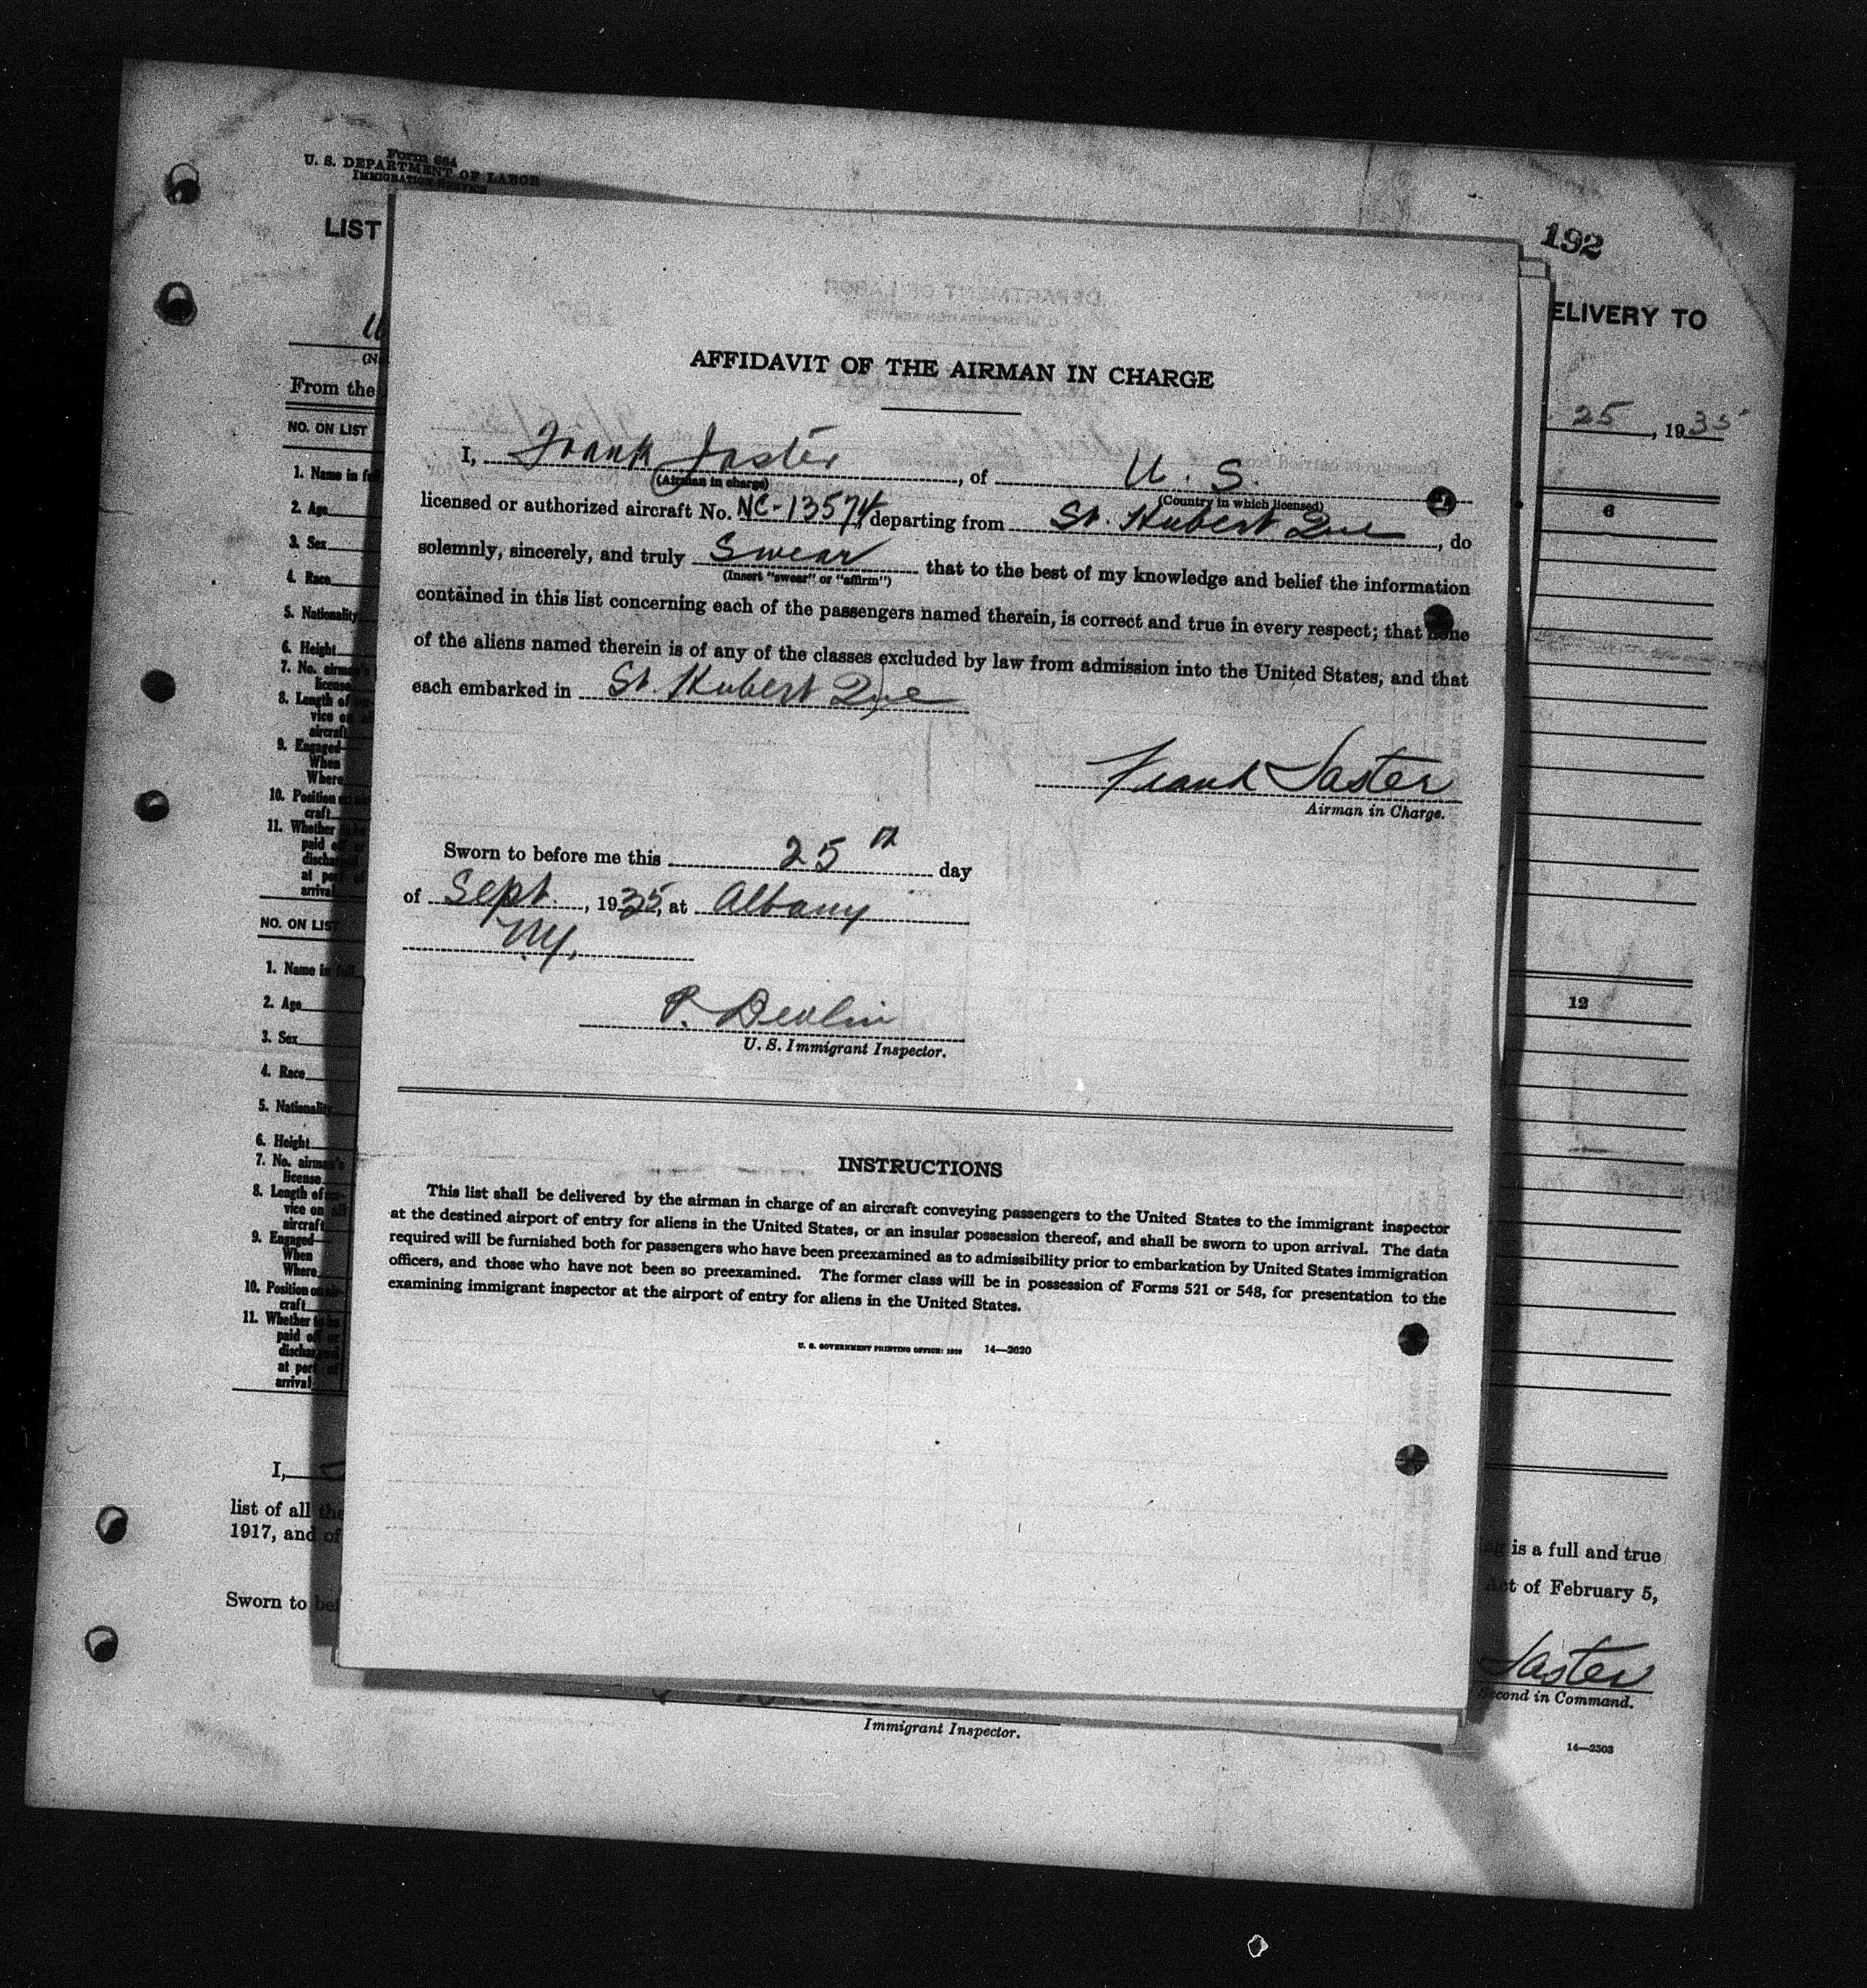 Form 664
U. S. DEPARTMENT OF LABOR
IMMIGRATION SERVICE
LIST
192
ELIVERY TO
25, 1935
From the
NO. ON LIST
6
1. Name in full
2. Age
3. Sex
4. Race
5. Nationality
6. Height
7. No. airman's
license
8. Length of ser-
vice on all
aircraft
9. Engaged
When
Where
10. Position on air-
craft
11. Whether to be
paid off or
discharged
at port of
arrival
NO. ON LIST
12
1. Name in full
2. Age
3. Sex
4. Race
5. Nationality
6. Height
7. No. airman's
license
8. Length of ser-
vice on all
aircraft
9. Engaged
When
Where
10. Position on air-
craft
11. Whether to be
paid off or
discharged
at port of
arrival
I,
list of all the
1917, and of
Sworn to bef
AFFIDAVIT OF THE AIRMAN IN CHARGE
I, Frank Jaster, of U. S.
(Airman in charge) (Country in which licensed)
licensed or authorized aircraft No. NC-13574 departing from St. Hubert Que, do
solemnly, sincerely, and truly Swear that to the best of my knowledge and belief the information
(Insert "swear" or "affirm")
contained in this list concerning each of the passengers named therein, is correct and true in every respect; that none
of the aliens named therein is of any of the classes excluded by law from admission into the United States, and that
each embarked in St. Hubert Que
Frank Jaster
Airman in Charge.
Sworn to before me this 25th day
of Sept., 1935, at Albany
NY.
P. Devlin
U. S. Immigrant Inspector.
INSTRUCTIONS
This list shall be delivered by the airman in charge of an aircraft conveying passengers to the United States to the immigrant inspector
at the destined airport of entry for aliens in the United States, or an insular possession thereof, and shall be sworn to upon arrival. The data
required will be furnished both for passengers who have been preexamined as to admissibility prior to embarkation by United States immigration
officers, and those who have not been so preexamined. The former class will be in possession of Forms 521 or 548, for presentation to the
examining immigrant inspector at the airport of entry for aliens in the United States.
U. S. GOVERNMENT PRINTING OFFICE: 14—2620
is a full and true
Act of February 5,
Jaster
Second in Command.
Immigrant Inspector.
14—2503